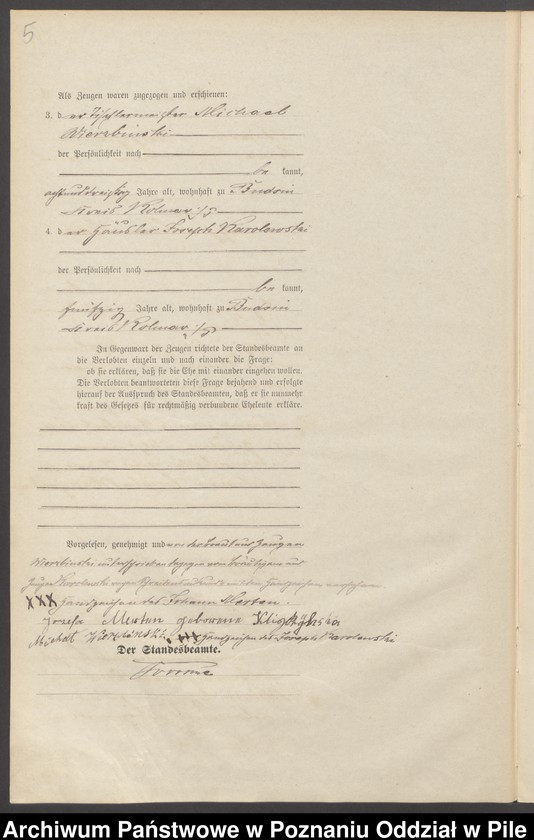 5
Als Zeugen waren zugezogen und erschienen:
3. der Tischlermeister Michael
Wierzbinski
der Persönlichkeit nach
be kannt,
achtunddreißig Jahre alt, wohnhaft zu Budsin
Kreis Kolmar i/P
4. der Häusler Joseph Karolewski
der Persönlichkeit nach
be kannt,
fünfzig Jahre alt, wohnhaft zu Budsin
Kreis Kolmar i/P
In Gegenwart der Zeugen richtete der Standesbeamte an
die Verlobten einzeln und nach einander die Frage:
ob sie erklären, daß sie die Ehe mit einander eingehen wollen.
Die Verlobten beantworteten diese Frage bejahend und erfolgte
hierauf der Ausspruch des Standesbeamten, daß er sie nunmehr
kraft des Gesetzes für rechtmäßig verbundene Eheleute erkläre.
Vorgelesen, genehmigt und von der Braut und Zeugen
Wierzbinski unterschrieben dagegen vom Bräutigam und
Zeugen Karolewski wegen mit den Handzeichen versehen
XXX Handzeichen des Johann Merten.
Jozefa Merten geborene
Michał Wierzbinski, XXX Handzeichen des Joseph Karolewski
Der Standesbeamte.
Archiwum Państwowe w Poznaniu Oddział w Pile